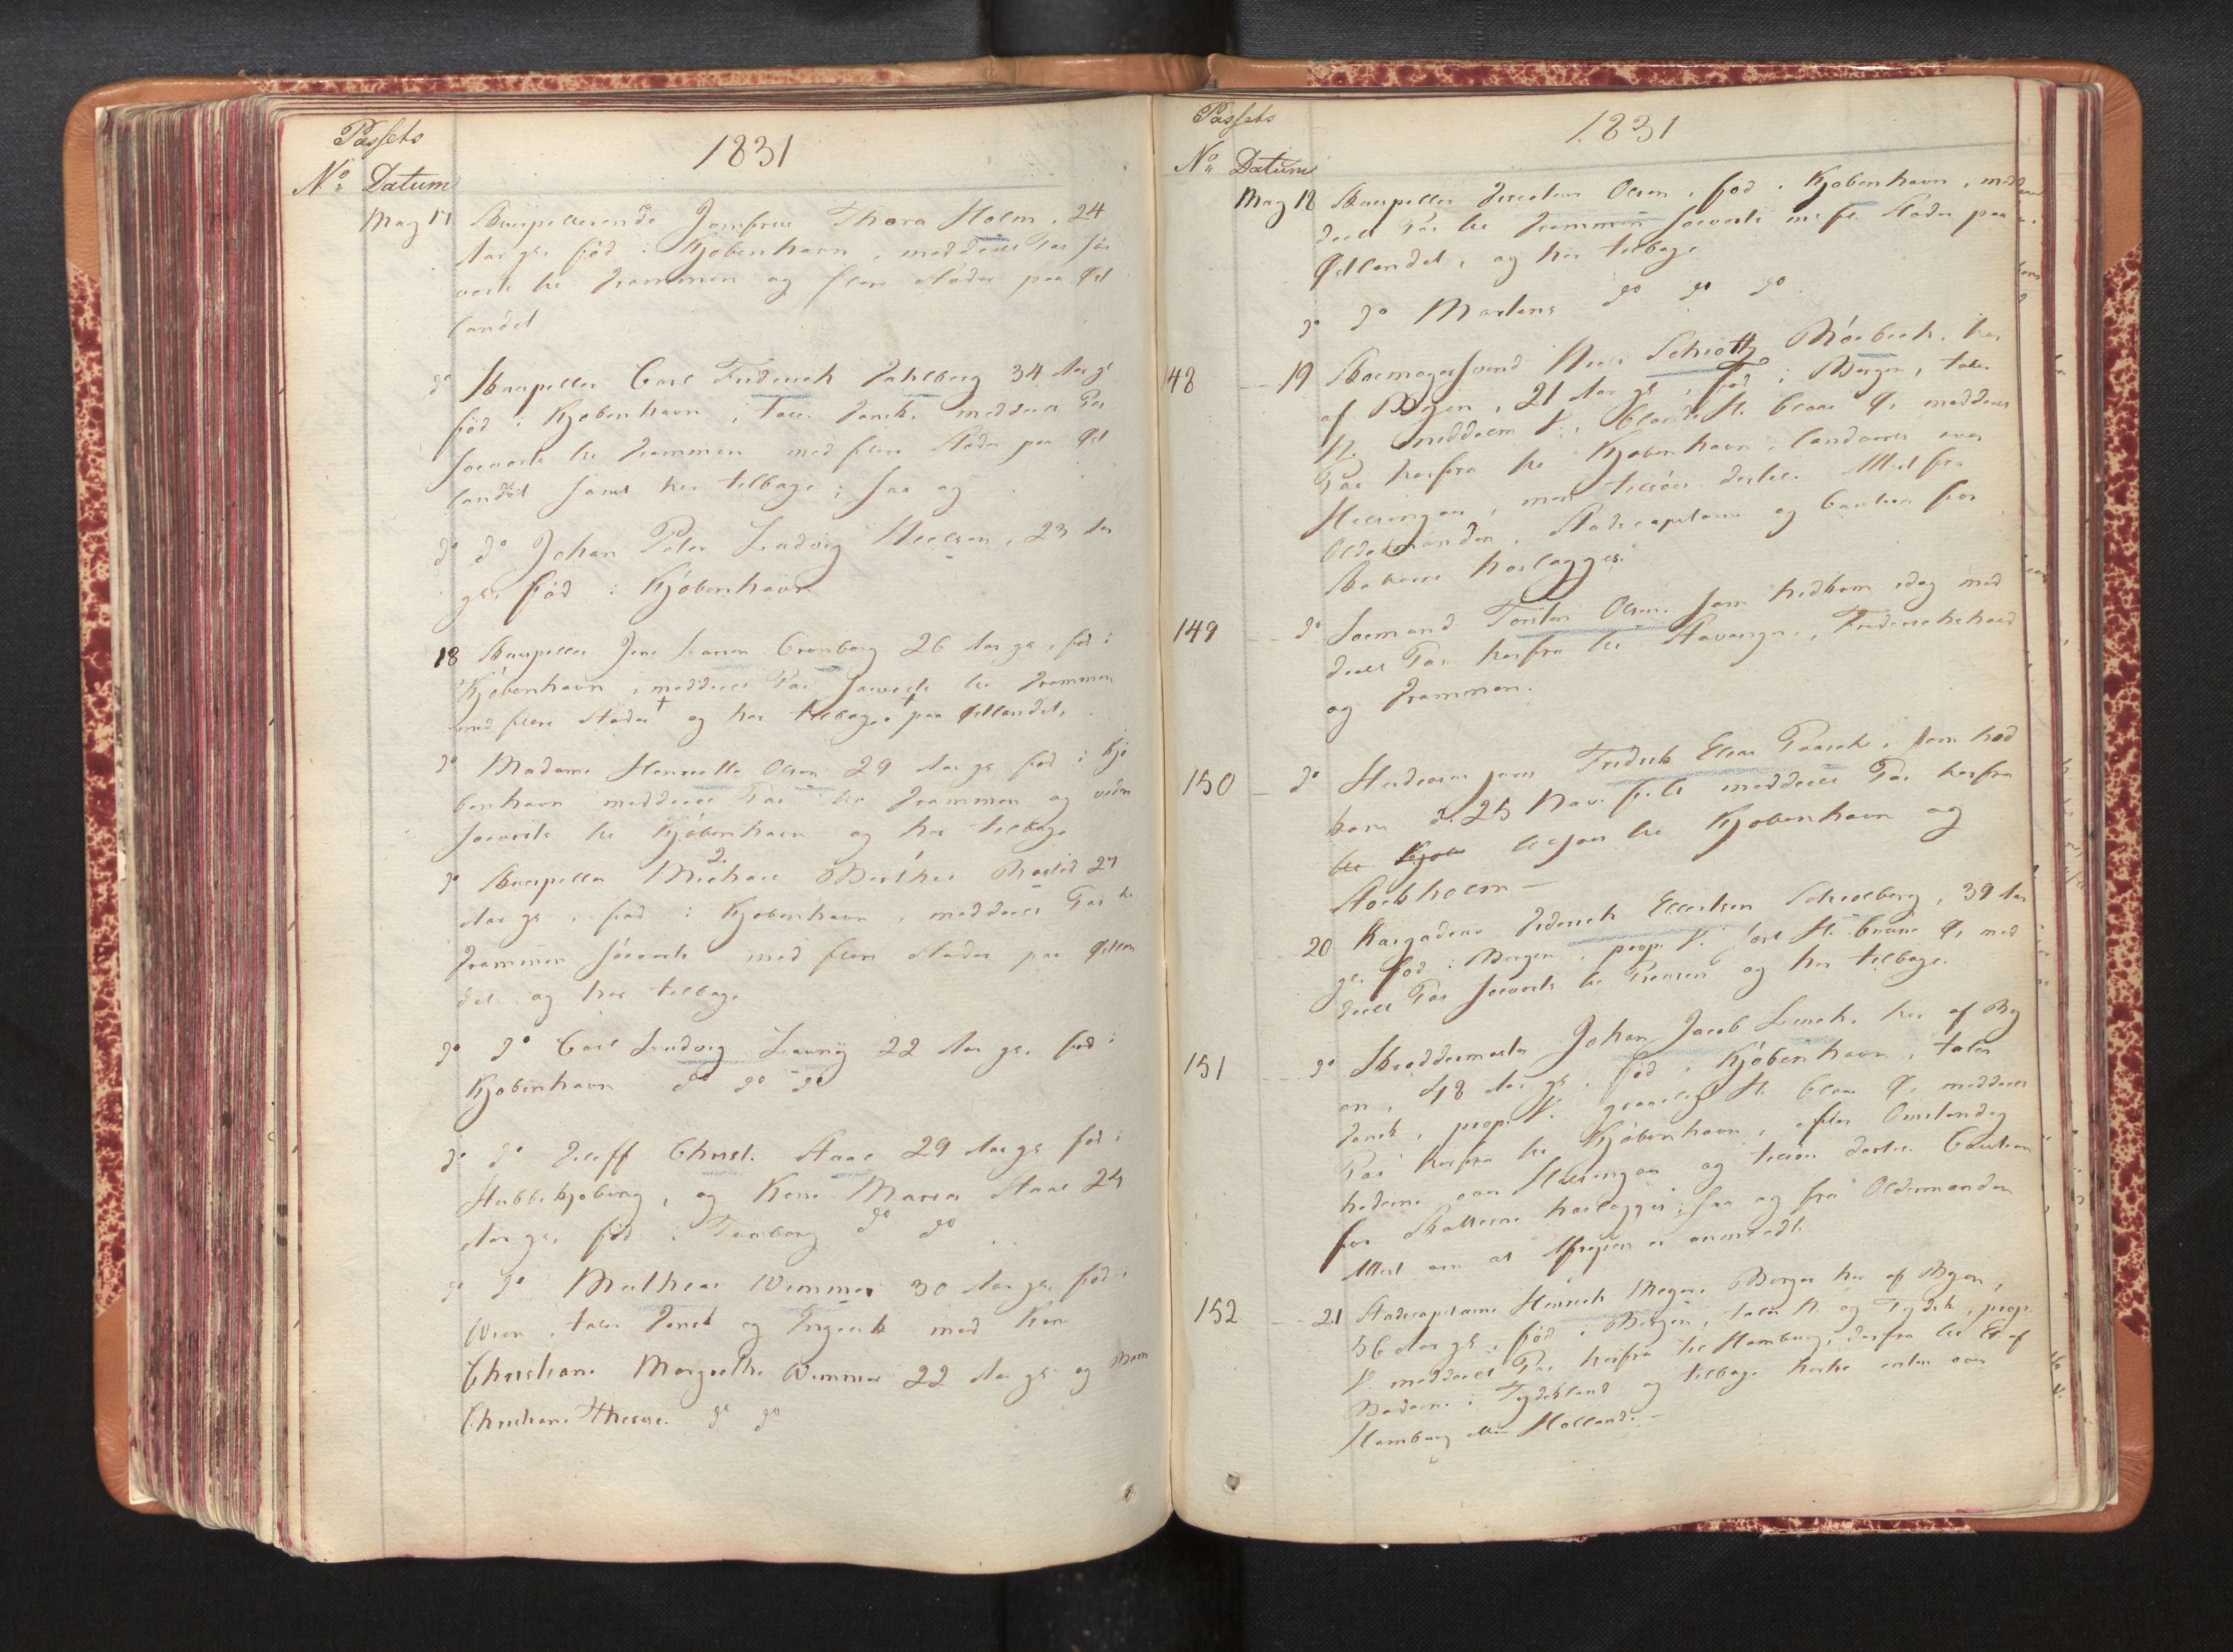 Passets
1831
No Datum
May 17 Skuespillerinde Jomfrue Thora Holm, 24
Aar gl. fød i Kjøbenhavn, meddeelt Pas søe
værts til Drammen og flere Stæder paa Øst
landet
do Skuespiller Carl Friderich Dahlberg 34 Aar gl
fød i Kjøbenhavn, taler Dansk, meddeelt Pas
søeværts til Drammen med flere Stæder paa Øst
landet samt her tilbage; saa og
do do Johan Peter Ludvig Nielsen, 23 Aar
gl. fød i Kjøbenhavn
18 Skuespiller Jens Larsen Cronborg 26 Aar gl. fød i
Kjøbenhavn, meddeelt Pas søeværts til Drammen
med flere Stæder + og her tilbage + paa Østlandet,
do Madame Henriette Olsen 29 Aar gl. fød i Kjø
benhavn meddeelt Pas til Drammen og vidre
søeværts til Kjøbenhavn og her tilbage
do Skuespiller Michael Rosted 27
Aar gl. fød i Kjøbenhavn, meddeelt Pas til
Drammen søeværts med flere Stæder paa Østlan
det og her tilbage
do do Carl Ludvig 22 Aar gl. fød i
Kjøbenhavn do do do
do do Christ. Staal 29 Aar gl. fød i
Stubbekjøbing, og Kone Maria Staal 24
Aar gl. fød i do do
do do Mathias Wimmer 30 Aar gl. fød i
Wien, taler Dansk og med Kone
Christiane Margrethe Wimmer 22 Aar gl. og Barn
Christiane Therese. do do
Passets
1831
No Datum
May 18 Skuespiller Olsen, fød i Kjøbenhavn, med
deelt Pas til Drammen søeværts m. fl. Stæder paa
Østlandet, og her tilbage
do do Martens do do do
148 19 Skoemagersvend Schrøtz her
af Byen, 21 Aar gl, fød i Bergen, taler
N. middels V. blond H. blaae Ø. meddeelt
Pas herfra til Kjøbenhavn, landværts over
Helsingør, med dertil. Attest fra
Oldermanden, Stadscapitain og Caution for
Skatterne herlagges.
149 do Søemand Torsten Olsen, som hidkom idag med
deelt Pas herfra til Stavanger, Friderichshald
og Drammen.
150 do Studiosus juris Fridrik Elias som hid
kom d. 25 Nov. f. A. meddeelt Pas herfra
til Kjøbenhavn og
Stockholm —
20 Kargadeur Diderich Ellertsen 39 Aar
gl. fød i Bergen, prop. V. sort H. brune Ø. med
deelt Pas søeværts til og her tilbage.
151 do Skrædermester Johan Jacob her af By
en, 48 Aar gl. fød i Kjøbenhavn, taler
Dansk, prop. V. graalig H. blaae Ø. meddeelt
Pas herfra til Kjøbenhavn, efter Omstændig
hederne over Helsingør og dertil. Caution
for Skatterne herlagges; saa og fra Oldermanden
Attest om at Afreisen er anmeldt.
152 21 Stadscapitaine Hinrich Meyer, Borger her af Byen,
56 Aar gl. fød i Bergen, taler N. og Tydsk, prop.
V. meddeelt Pas herfra til Hamburg, derfra til Et af
Badene i Tydskland og tilbage hertil enten over
Hamburg eller Holland. —